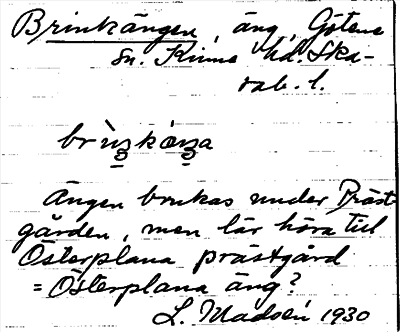 Brinkängen, äng, Götene
sn. Kinne hd. Ska-
rab. l.
Ängen brukas under Präst
gården, men lär höra till
Österplana prästgård
= Österplana äng?
1930